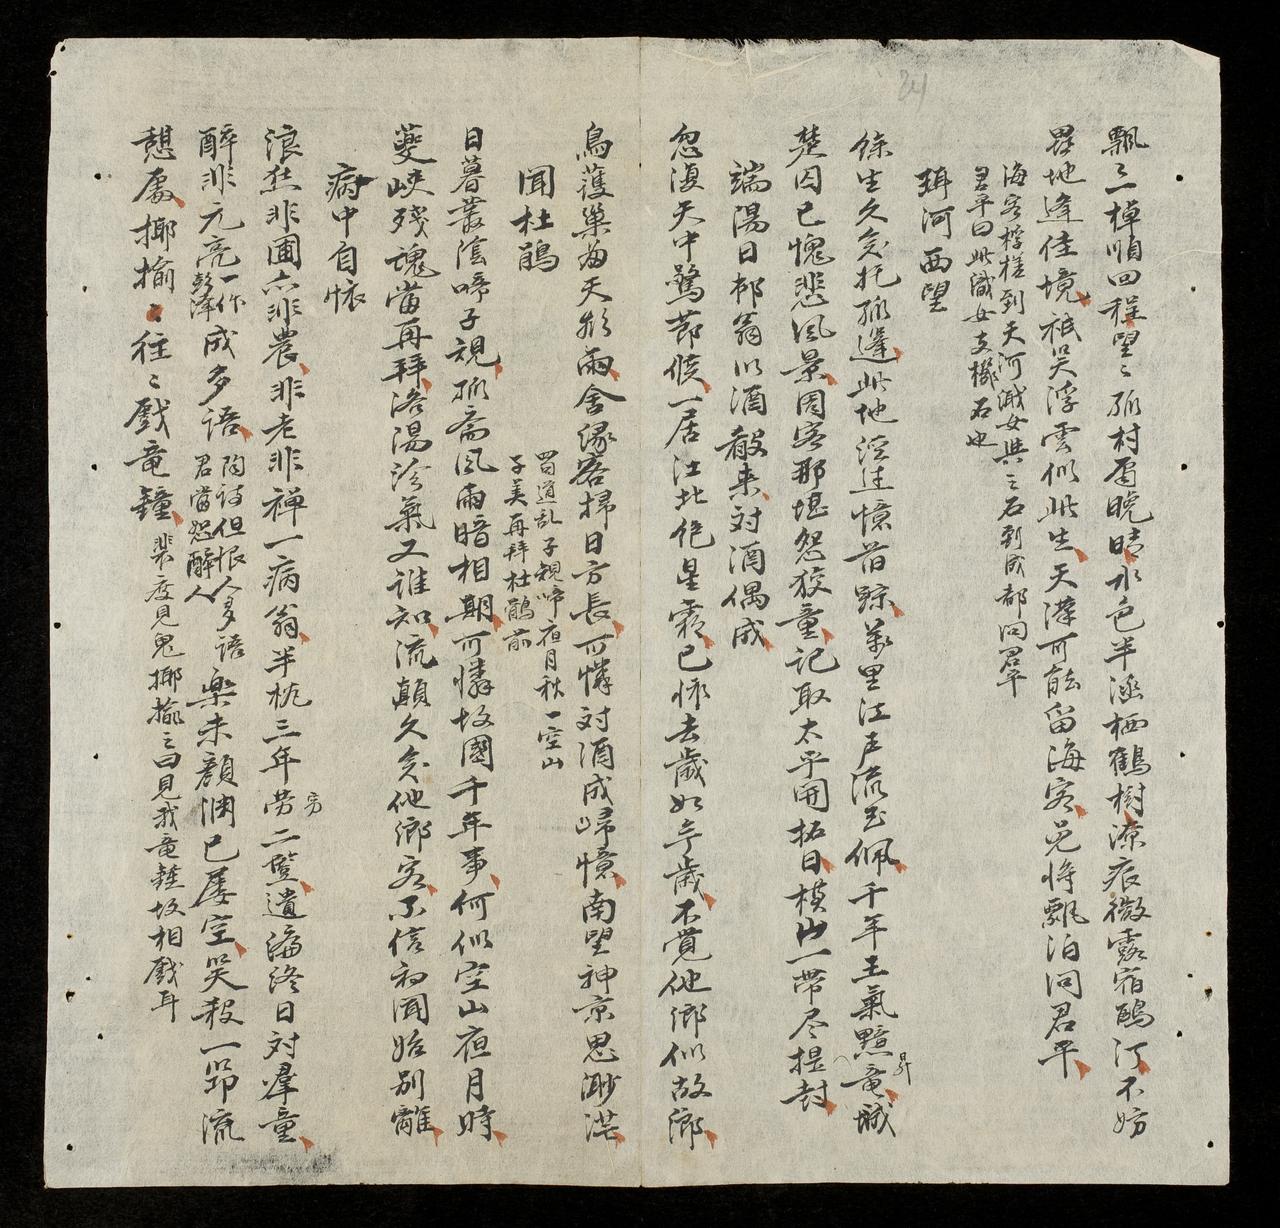 24
飄〻棹順回程望〻孤村雨晚晴水色半涵栖鶴樹潦痕微露宿鷗汀不妨
異地逢佳境祇哭浮雲似此生天漢可能留海客兄将飄泊問君平
海客桴槎到天河溅女與之石到成都问君平
君平曰此識女支機石也
珥河西望
餘生久矣托孤逢此地深迷憶昔踪萬里江声流玉佩千年王氣黯竜城
昇
楚囚已愧悲風景周客那堪怨狡童記取太平開拓日横山一帶尽提封
端陽日邨翁以酒殽来対酒偶成
忽復天中驚節候一居江北绝星霜已怀去歲如今歲不覚他鄉似故鄉
鳥獲巢為天欲雨舍緣客掃日方長可憐対酒成歸憶南望神京思渺茫
聞杜鵑
蜀道乱子規啼夜月秋一空山
子美再拜杜鵑前
日暮叢陰啼子規孤斎風雨暗相期可憐故國千年事何似空山夜月時
夔峽残魂當再拜洛湯沴氣又誰知流顛久矣他鄉客不信初聞始別離
病中自怀
浪狂非圃亦非農非老非禅一病翁半枕三年労二竪遺編終日対群童
労
醉非元亮一作彭澤成多語陶诗但恨人多語君當恕醉人樂未顔渊已屡空哭殺一笻流
憩處揶揄〻往〻戲竜鐘裴度見鬼揶揄之曰見我竜鍾故相戲耳